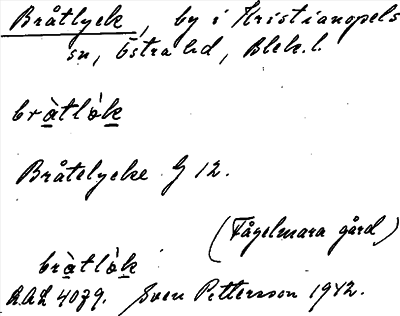 Bråtlyck, by i Kristianopels
sn, Östra hd, Blek. l.
bràtlòk
Bråtelycke G 12.
(Fågelmara gård)
bràtlòk
R.A.L 4079. Sven Pettersson 1942.